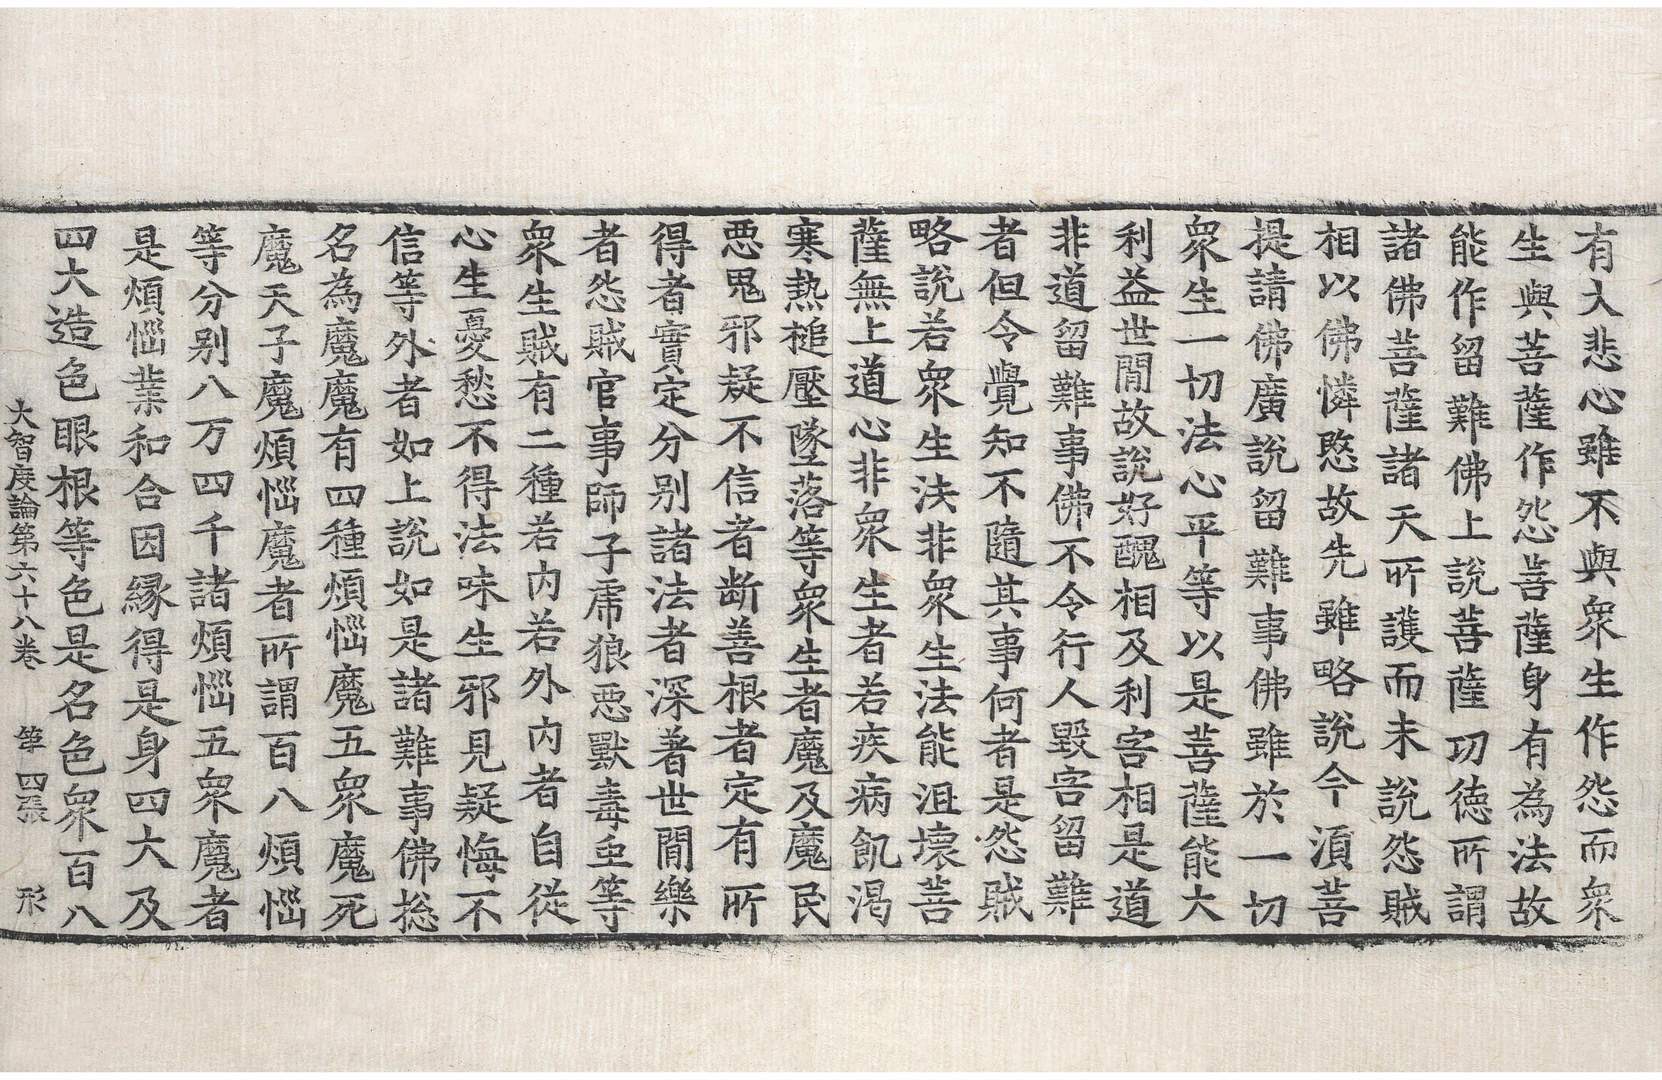 有大悲心雖不與衆生作怨而衆
生與菩薩作怨菩薩身有為法故
能作留難佛上說菩薩功德所謂
諸佛菩薩諸天所護而未說怨賊
相以佛憐愍故先雖略說今湏菩
提請佛廣說留難事佛雖於一切
衆生一切法心平等以是菩薩能大
利益世閒故說好醜相及利害相是道
非道留難事佛不令行人毀害留難
者但令覺知不隨其事何者是怨賊
略說若衆生法非衆生法能沮壞菩
薩無上道心非衆生者若疾病飢渴
寒熱槌壓墜落等衆生者魔及魔民
惡鬼邪疑不信者断善根者定有所
得者實定分別諸法者深著世閒樂
者怨賊官事師子虎狼惡獸毒虫等
衆生賊有二種若內若外內者自從
心生憂愁不得法味生邪見疑悔不
信等外者如上說如是諸難事佛摠
名為魔魔有四種煩惱魔五衆魔死
魔天子魔煩惱魔者所謂百八煩惱
等分別八万四千諸煩惱五衆魔者
是煩惱業和合因縁得是身四大及
四大造色眼根等色是名色衆百八
大智度論第六十八卷　第四張　形